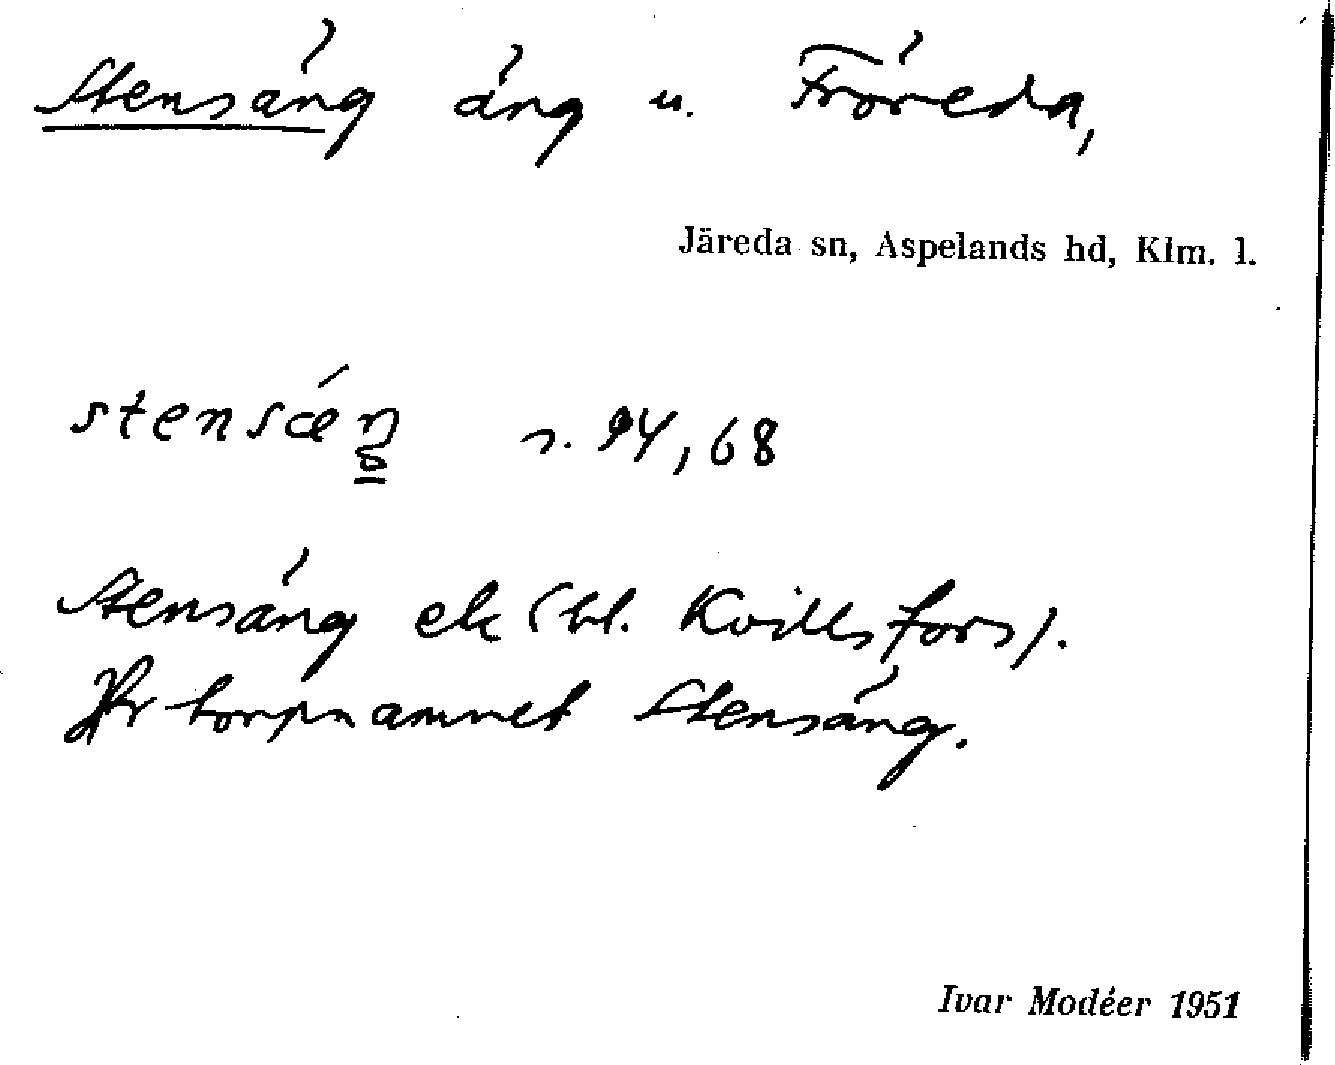 Stensäng äng u. Fröreda,
Järeda sn, Aspelands hd, Klm. l.
stensǽŋ s. 94, 68
Stensäng ek (bl. Kvillsfors).
Jfr torpnamnet Stensäng.
Ivar Modéer 1951